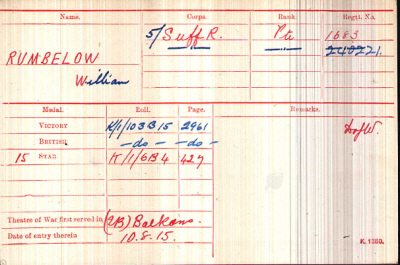 Name. Corps. Rank. Regtl. No.
5/Suff R. Pte 1683
RUMBELOW 240221.
William
Medal. Roll. Page. Remarks.
VICTORY K/1/103B15 2961
BRITISH -do- -do-
15 STAR K/1/6B4 427
Theatre of War first served in (2B) Balkans.
Date of entry therein 10.8.15.
K. 1380.